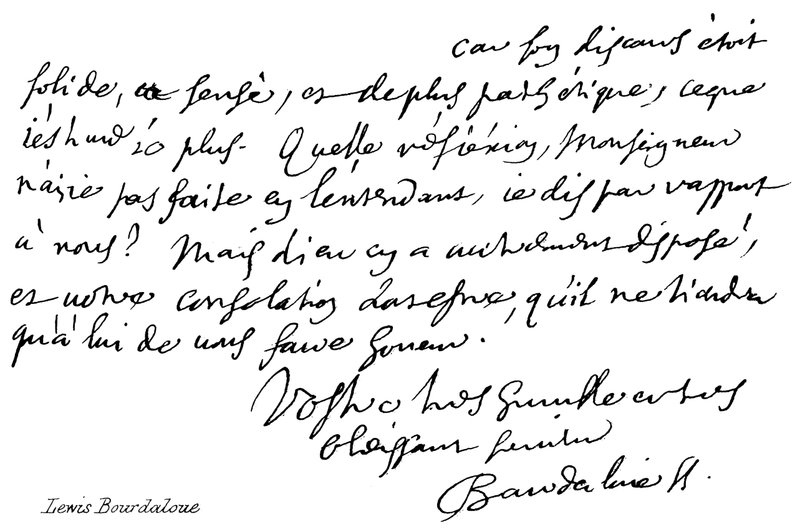 car son discours étoit
solide, sensé, et de plus pathétique, ce que
plus. Quelle réfléxion, Monseigneur
n'ai-ie pas faite en l'entendant, ie dis par rapport
à nous? Mais dieu en a autrement disposé,
et notre consolation doit estre, qu'il ne tiendra
qu'à lui de nous faire honneur.
Vostre tres humble et tres
obéissant serviteur
Bourdaloue
Lewis Bourdaloue